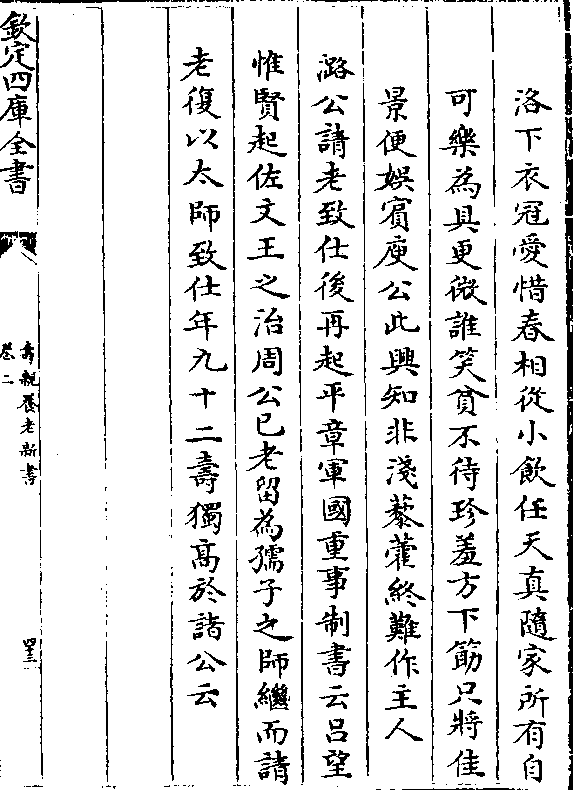 洛下衣冠愛惜春相從小飲任天真隨家所有自
可樂為具更微誰笑貧不待珍羞方下筯只將佳
景便娛賓庾公此興知非淺藜藿終難作主人
潞公請老致仕後再起平章軍國重事制書云吕望
惟賢起佐文王之治周公已老留為孺子之師繼而請
老復以太師致仕年九十二壽獨高於諸公云
欽定四庫全書
壽親養老新書
卷二